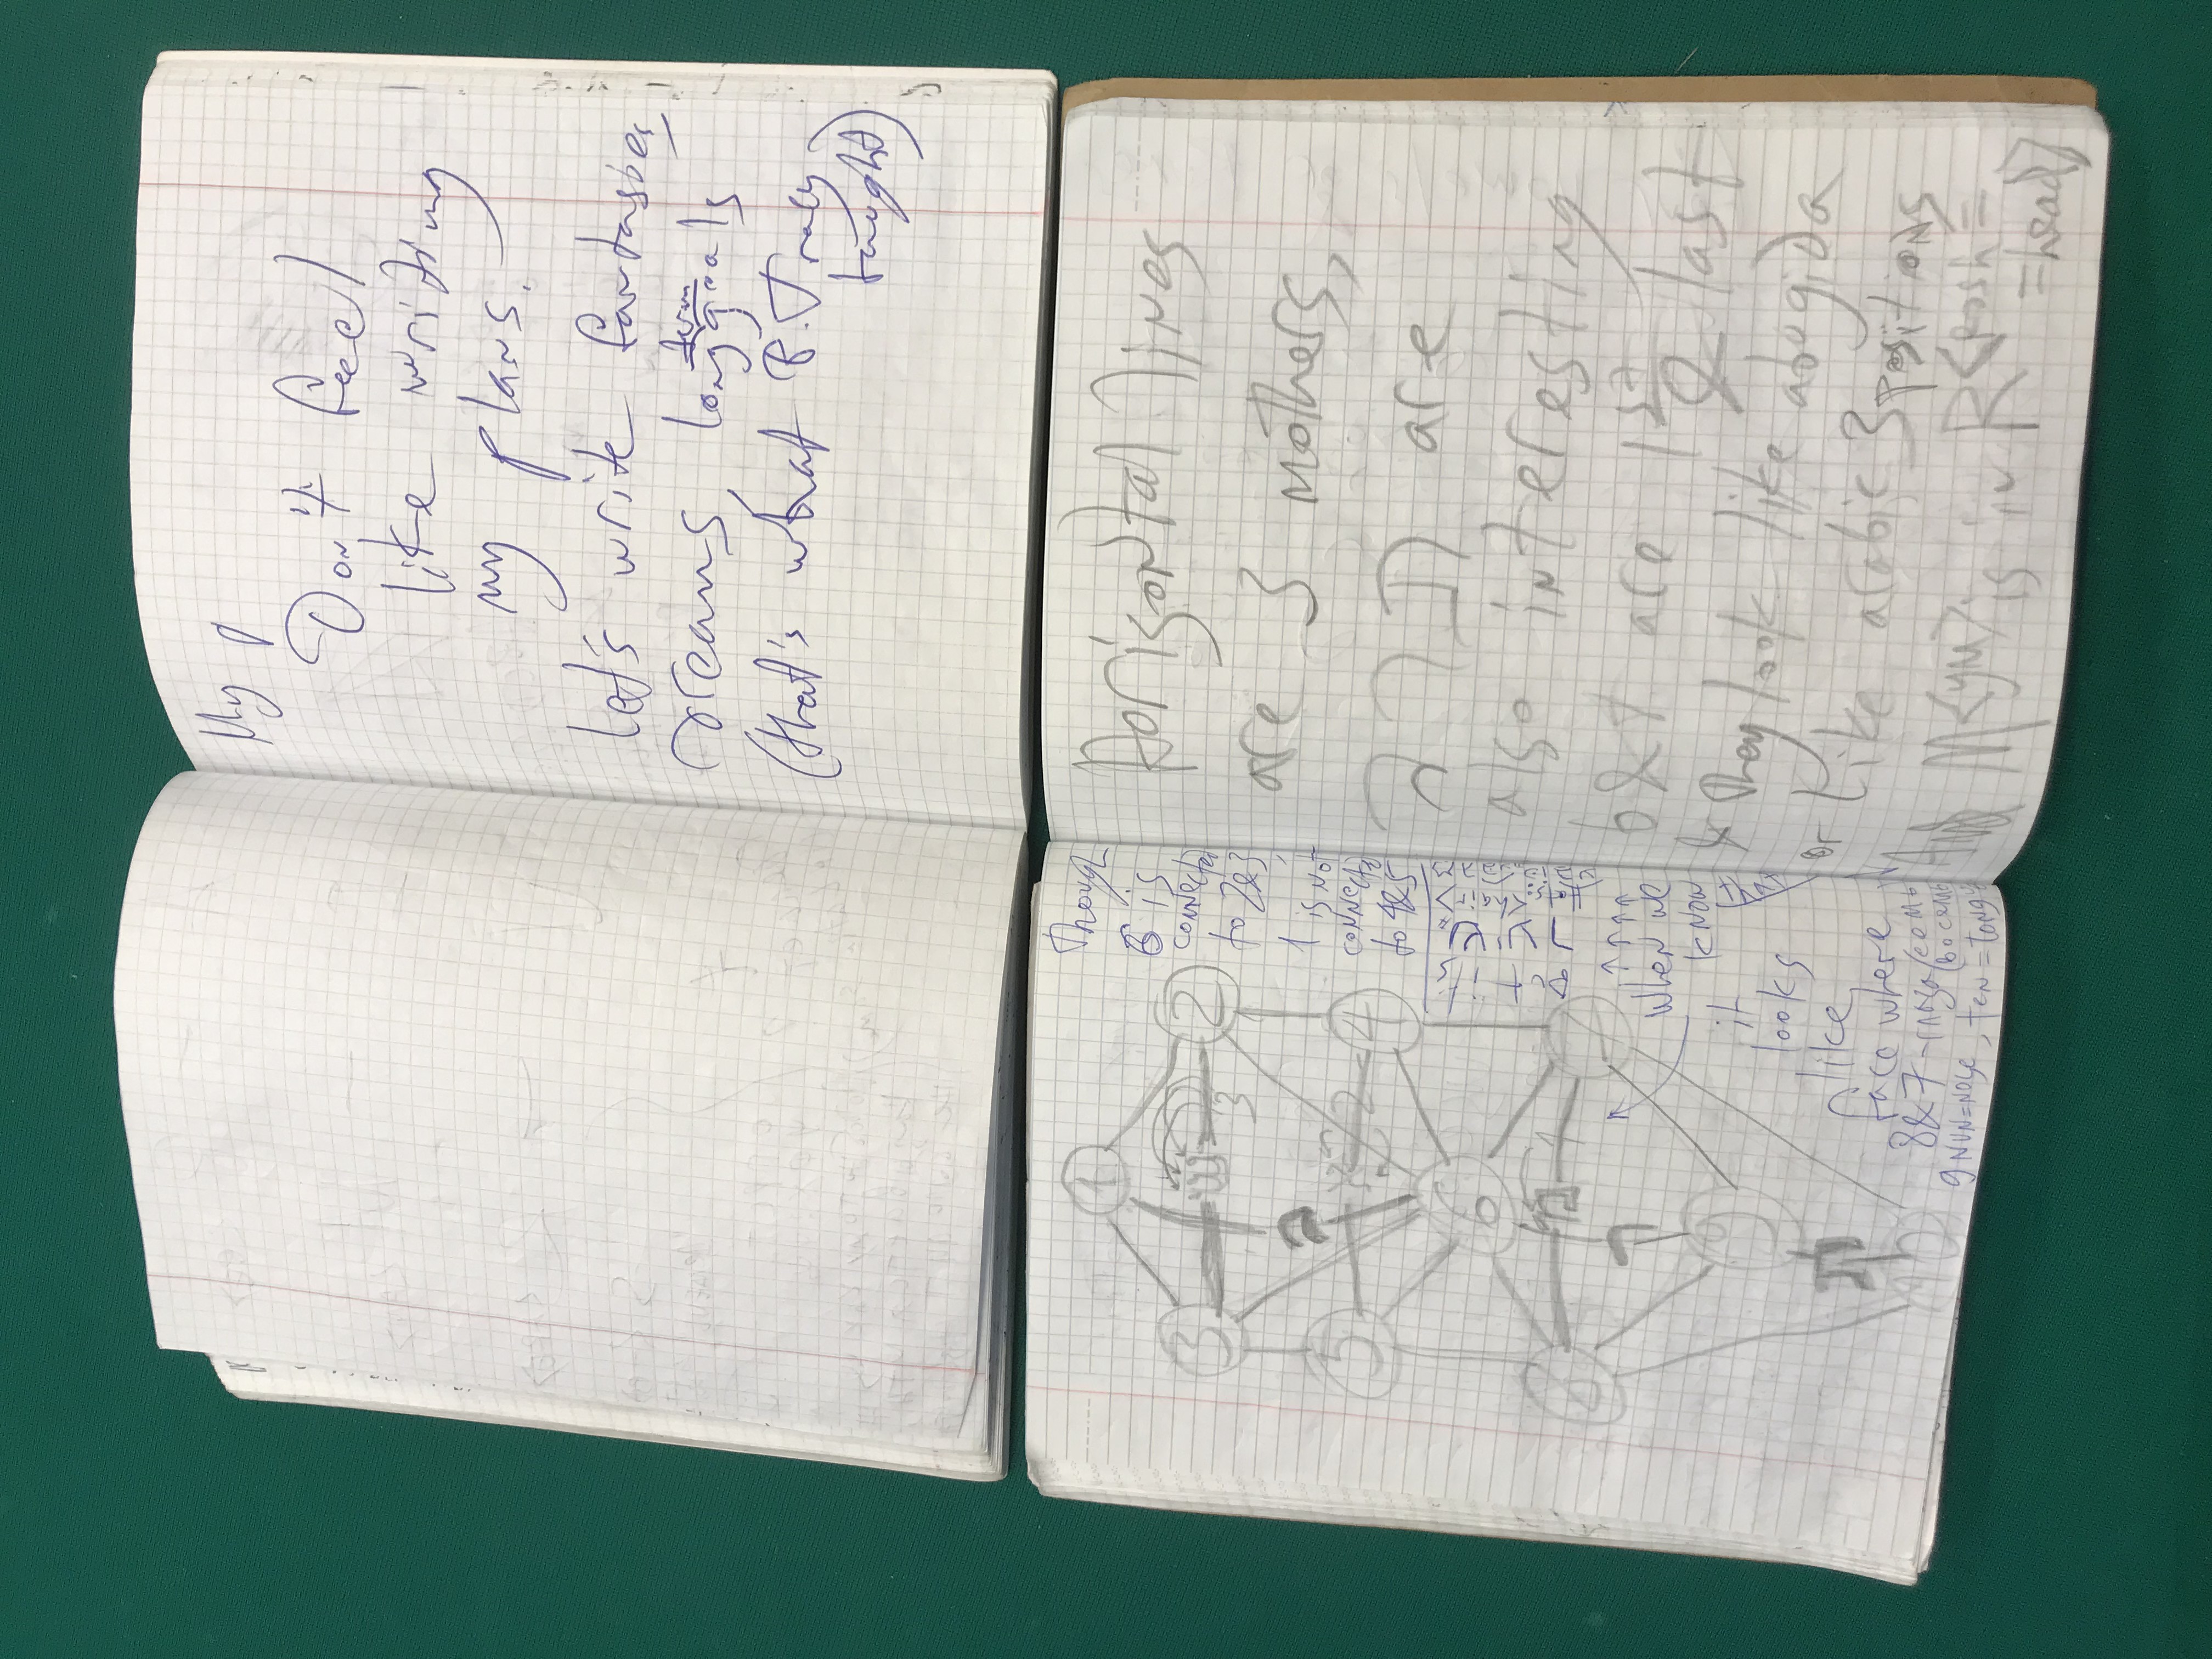 My p
Don't feel
like writing
my plans.
Let's write fantasies,
dreams, long term goals
(that's what B. Tracy
taught)
1
3
2
3
ש
ב
5
4
2
6
מ
1
ר
8
7
9
ת
10
Though
6 is
connected
to 2&3,
1 is not
connected
to 4&5
But it's
שיער
<hair>
when we
know
that
it
looks
like
face where
8&7 - глаза
9 NUN=nose, ten=tongue
Horisontal lines
are 3 mothers,
ב ר ת are
also interesting
b&t are 1st & last
& they look like abugida
or like arabic 3 positions
And M<yM> is in R<Rosh=
=head>